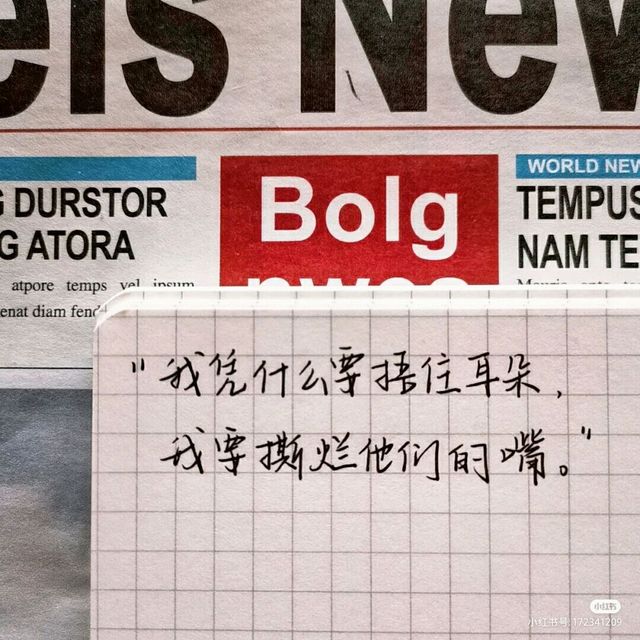 els New
DURSTOR
G ATORA
atpore temps vel ipsum
enat diam fend
Bolg
WORLD NEW
TEMPUS
NAM TE
"我凭什么要捂住耳朵，
我要撕烂他们的嘴。"
小红书
小红书号:172341209